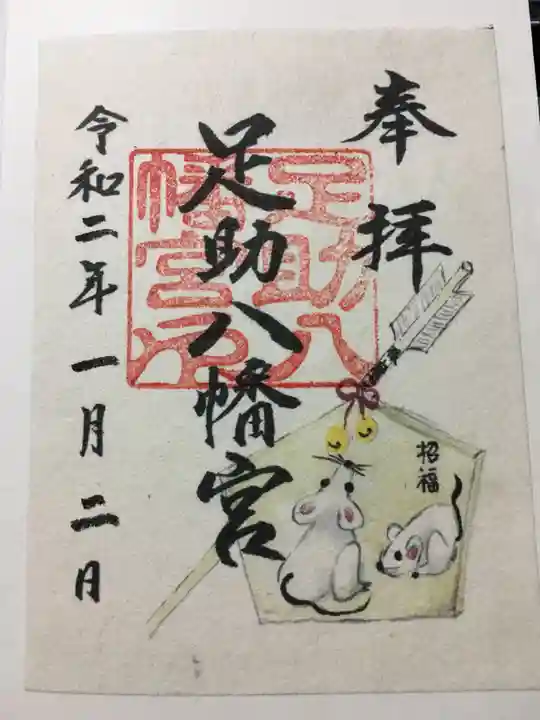 奉拝
足助八幡宮
足助八幡宮印
令和二年一月二日
招福